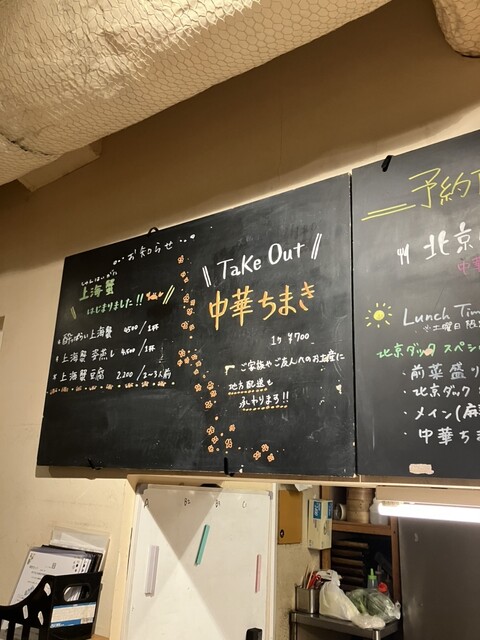 お知らせ
しゃんはいがに
上海蟹
はじまりました!!
酔っぱらい上海蟹 4500/1杯
上海蟹 姿蒸し 4,500/1杯
上海蟹豆腐 2,200/2~3人前
Take Out
中華ちまき
1ケ ¥700
ご家族やご友人へのお土産に
地方配送も
承ります!!
予約
北京
Lunch Tim
※土曜日 限
北京ダック スペシ
・前菜盛り
・北京ダック
・メイン(麻
・中華ちま